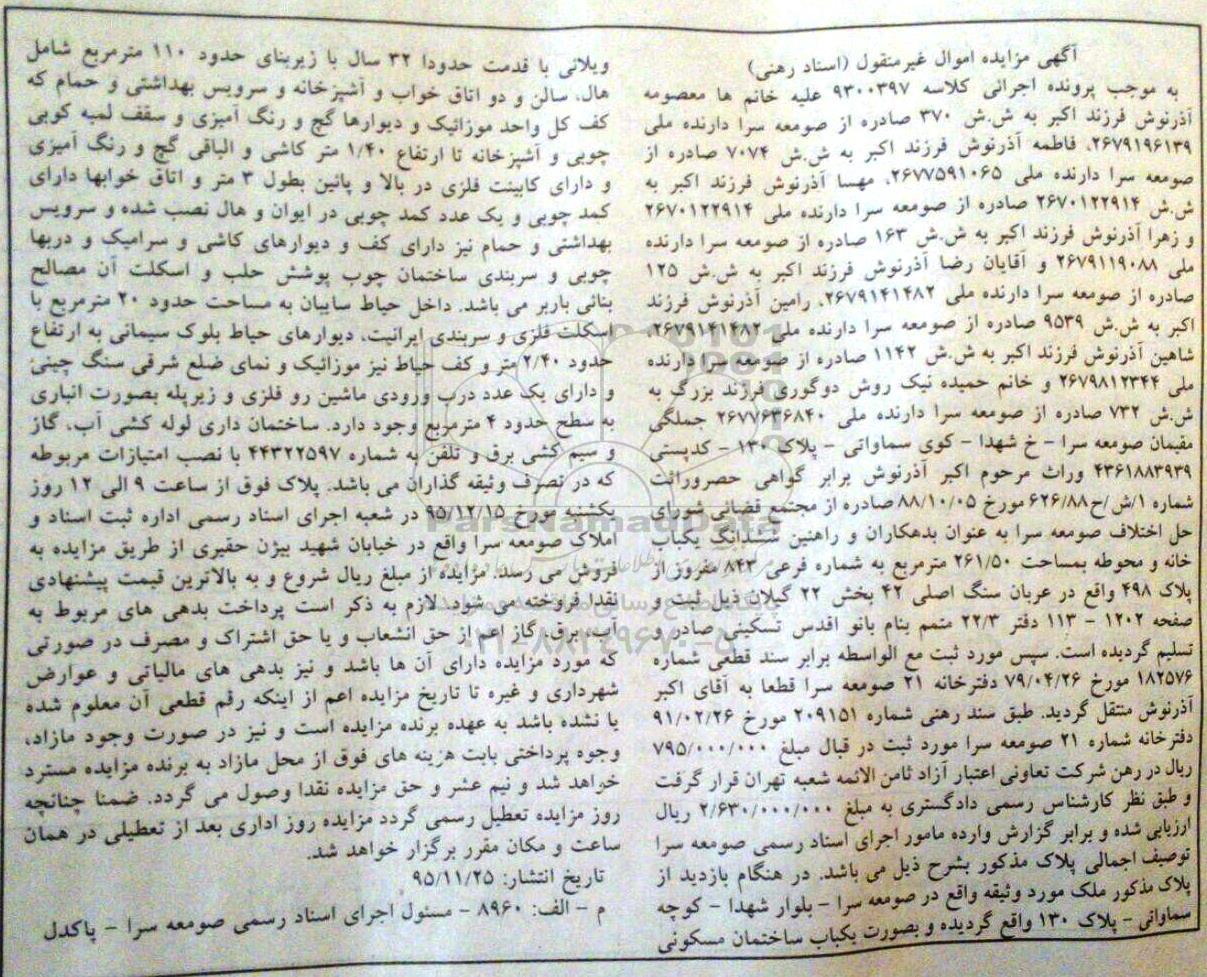 آگهی مزایده اموال غیرمنقول (اسناد رهنی)
به موجب پرونده اجرائی کلاسه ۹۳۰۰۳۹۷ علیه خانم ها معصومه
آذرنوش فرزند اکبر به ش.ش ۳۷۰ صادره از صومعه سرا دارنده ملی
۲۶۷۹۱۹۶۱۳۹، فاطمه آذرنوش فرزند اکبر به ش.ش ۷۰۷۴ صادره از
صومعه سرا دارنده ملی ۲۶۷۷۵۹۱۰۶۵، مهسا آذرنوش فرزند اکبر به
ش.ش ۲۶۷۰۱۲۲۹۱۴ صادره از صومعه سرا دارنده ملی ۲۶۷۰۱۲۲۹۱۴
و زهرا آذرنوش فرزند اکبر به ش.ش ۱۶۳ صادره از صومعه سرا دارنده
ملی ۲۶۷۹۱۱۹۰۸۸ و آقایان رضا آذرنوش فرزند اکبر به ش.ش ۱۲۵
صادره از صومعه سرا دارنده ملی ۲۶۷۹۱۴۱۴۸۲، رامین آذرنوش فرزند
اکبر به ش.ش ۹۵۳۹ صادره از صومعه سرا دارنده ملی ۲۶۷۹۱۴۱۴۸۲،
شاهین آذرنوش فرزند اکبر به ش.ش ۱۱۴۲ صادره از صومعه سرا دارنده
ملی ۲۶۷۹۸۱۲۳۴۴ و خانم حمیده نیک روش دوگوری فرزند بزرگ به
ش.ش ۷۳۲ صادره از صومعه سرا دارنده ملی ۲۶۷۷۶۳۶۸۴۰ جملگی
مقیمان صومعه سرا - خ شهدا - کوی سماواتی - پلاک ۱۳۰ - کدپستی
۴۳۶۱۸۸۳۹۳۹ وراث مرحوم اکبر آذرنوش برابر گواهی حصروراثت
شماره ۱/ش/ح۶۲۶/۸۸ مورخ ۸۸/۱۰/۰۵ صادره از مجتمع قضائی شورای
حل اختلاف صومعه سرا به عنوان بدهکاران و راهنین ششدانگ یکباب
خانه و محوطه بمساحت ۲۶۱/۵۰ مترمربع به شماره فرعی ۸۴۳ مفروز از
پلاک ۴۹۸ واقع در عربان سنگ اصلی ۴۲ بخش ۲۲ گیلان ذیل ثبت و
صفحه ۱۲۰۲ - ۱۱۳ دفتر ۲۲/۳ متمم بنام بانو اقدس تسکینی صادر و
تسلیم گردیده است. سپس مورد ثبت مع الواسطه برابر سند قطعی شماره
۱۸۲۵۷۶ مورخ ۷۹/۰۴/۲۶ دفترخانه ۲۱ صومعه سرا قطعا به آقای اکبر
آذرنوش منتقل گردید. طبق سند رهنی شماره ۲۰۹۱۵۱ مورخ ۹۱/۰۲/۲۶
دفترخانه شماره ۲۱ صومعه سرا مورد ثبت در قبال مبلغ ۷۹۵/۰۰۰/۰۰۰
ریال در رهن شرکت تعاونی اعتبار آزاد ثامن الائمه شعبه تهران قرار گرفت
و طبق نظر کارشناس رسمی دادگستری به مبلغ ۲/۶۳۰/۰۰۰/۰۰۰ ریال
ارزیابی شده و برابر گزارش وارده مامور اجرای اسناد رسمی صومعه سرا
توصیف اجمالی پلاک مذکور بشرح ذیل می باشد. در هنگام بازدید از
پلاک مذکور ملک مورد وثیقه واقع در صومعه سرا - بلوار شهدا - کوچه
سماواتی - پلاک ۱۳۰ واقع گردیده و بصورت یکباب ساختمان مسکونی
ویلائی با قدمت حدودا ۳۲ سال با زیربنای حدود ۱۱۰ مترمربع شامل
هال، سالن و دو اتاق خواب و آشپزخانه و سرویس بهداشتی و حمام که
کف کل واحد موزائیک و دیوارها گچ و رنگ آمیزی و سقف لمبه کوبی
چوبی و آشپزخانه تا ارتفاع ۱/۴۰ متر کاشی و الباقی گچ و رنگ آمیزی
و دارای کابینت فلزی در بالا و پائین بطول ۳ متر و اتاق خوابها دارای
کمد چوبی و یک عدد کمد چوبی در ایوان و هال نصب شده و سرویس
بهداشتی و حمام نیز دارای کف و دیوارهای کاشی و سرامیک و دربها
چوبی و سربندی ساختمان چوب پوشش حلب و اسکلت آن مصالح
بنائی باربر می باشد. داخل حیاط سایبان به مساحت حدود ۲۰ مترمربع با
اسکلت فلزی و سربندی ایرانیت، دیوارهای حیاط بلوک سیمانی به ارتفاع
حدود ۲/۴۰ متر و کف حیاط نیز موزائیک و نمای ضلع شرقی سنگ چینی
و دارای یک عدد درب ورودی ماشین رو فلزی و زیرپله بصورت انباری
به سطح حدود ۴ مترمربع وجود دارد. ساختمان داری لوله کشی آب، گاز
و سیم کشی برق و تلفن به شماره ۴۴۳۲۲۵۹۷ با نصب امتیازات مربوطه
که در تصرف وثیقه گذاران می باشد. پلاک فوق از ساعت ۹ الی ۱۲ روز
یکشنبه مورخ ۹۵/۱۲/۱۵ در شعبه اجرای اسناد رسمی اداره ثبت اسناد و
املاک صومعه سرا واقع در خیابان شهید بیژن حقیری از طریق مزایده به
فروش می رسد. مزایده از مبلغ ریال شروع و به بالاترین قیمت پیشنهادی
نقدا فروخته می شود. لازم به ذکر است پرداخت بدهی های مربوط به
آب، برق، گاز اعم از حق انشعاب و یا حق اشتراک و مصرف در صورتی
که مورد مزایده دارای آن ها باشد و نیز بدهی های مالیاتی و عوارض
شهرداری و غیره تا تاریخ مزایده اعم از اینکه رقم قطعی آن معلوم شده
یا نشده باشد به عهده برنده مزایده است و نیز در صورت وجود مازاد،
وجوه پرداختی بابت هزینه های فوق از محل مازاد به برنده مزایده مسترد
خواهد شد و نیم عشر و حق مزایده نقدا وصول می گردد. ضمنا چنانچه
روز مزایده تعطیل رسمی گردد مزایده روز اداری بعد از تعطیلی در همان
ساعت و مکان مقرر برگزار خواهد شد.
تاریخ انتشار: ۹۵/۱۱/۲۵
م - الف: ۸۹۶۰ - مسئول اجرای اسناد رسمی صومعه سرا - پاکدل
ParsNamadData
۰۲۱-۸۸۳۴۹۶۷۰-۵